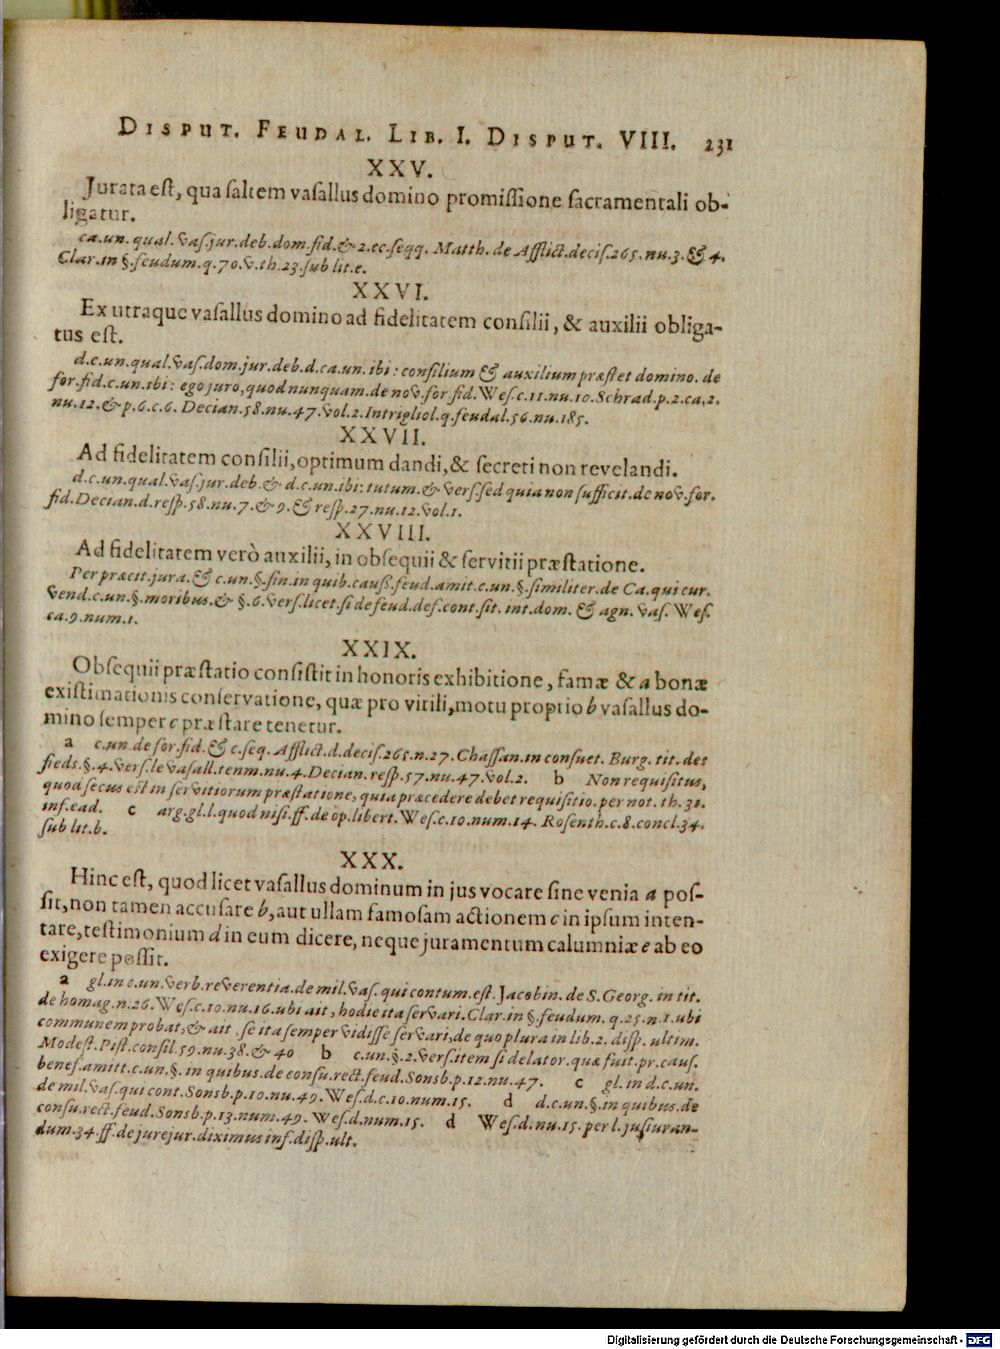 DISPUT. FEUDAL. LIB. I. DISPUT. VIII. 231
XXV.
Jurata est, qua saltem vasallus domino promissione sacramentali ob-
ligatur.
ca.un. qual. vas.jur.deb.dom.fid.& 2.ec.seqq. Matth. de Afflict.decis.265.nu.3. & 4.
Clar.in §.feudum.q.70.v.th.23.sub lit.e.
XXVI.
Ex utraque vasallus domino ad fidelitatem consilii, & auxilii obliga-
tus est.
d.c.un.qual.vas.dom.jur.deb.d.ca.un. ibi : consilium & auxilium præstet domino. de
for.fid.c.un.ibi: ego juro, quod nunquam.de nov.for.fid.Wes.c.11.nu.10.Schrad.p.2.ca,2.
nu.12.& p.6.c.6. Decian.58.nu.47.vol.2.Intrigliol.q.feudal.56.nu.185.
XXVII.
Ad fidelitatem consilii, optimum dandi, & secreti non revelandi.
d.c.un.qual.vas.jur.deb.& d.c.un.ibi: tutum.& vers.sed quia non sufficit.de nov.for.
fid.Decian.d.resp.58.nu.7.& 9.& resp.27.nu.12.vol.1.
XXVIII.
Ad fidelitatem verò auxilii, in obsequii & servitii præstatione.
Per præcit.jura.& c.un.§.fin.in quib.causs.feud.amit.c.un.§.similiter.de Ca.qui cur.
vend.c.un.§.moribus.& §.6.vers.licet.si de feud.def.cont.sit. int.dom. & agn. vas. Wes.
ca.9.num.1.
XXIX.
Obsequii præstatio consistit in honoris exhibitione, famæ & a bonæ
existimationis conservatione, quæ pro virili, motu proprio b vasallus do-
mino semper c præstare tenetur.
a c.un.de for.fid.& c.seq. Afflict.d.decis.265.n.27.Chassan.in consuet. Burg. tit. des
fieds.§.4.vers.le vasall.tenm.nu.4.Decian.resp.57.nu.47.vol.2. b Non requisitus,
quod secus est in servitiorum præstatione, quia præcedere debet requisitio.per not. th.31.
inf.ead. c arg.gl.l.quod nisi.ff.de op.libert.Wes.c.10.num.14. Rosenth.c.8.concl.34.
sub lit.b.
XXX.
Hinc est, quod licet vasallus dominum in jus vocare sine venia a pos-
sit, non tamen accusare b, aut ullam famosam actionem c in ipsum inten-
tare, testimonium d in eum dicere, neque juramentum calumniæ e ab eo
exigere possit.
a gl.in c.un.verb.reverentia.de mil.vas. qui contum.est.Jacobin. de S.Georg. in tit.
de homag.n.26.Wes.c.10.nu.16.ubi ait, hodie ita servari.Clar.in §.feudum. q.25.n.1.ubi
communem probat, & ait se ita semper vidisse servari, de quo plura in lib.2. disp. ultim.
Modest.Pist.consil.59.nu.38.& 40 b c.un.§.2.vers.item si delator.quæ fuit.pr.caus.
benef.amitt.c.un.§. in quibus.de consu.rect.feud.Sonsb.p.12.nu.47. c gl. in d.c.un.
de mil.vas.qui cont.Sonsb.p.10.nu.49.Wes.d.c.10.num.15. d d.c.un.§.in quibus.de
consu.rect.feud.Sonsb.p.13.num.49.Wes.d.num.15. d Wes.d.nu.15.per l.jusjuran-
dum.34.ff.de jurejur.diximus inf.disp.ult.
Digitalisierung gefördert durch die Deutsche Forschungsgemeinschaft - DFG